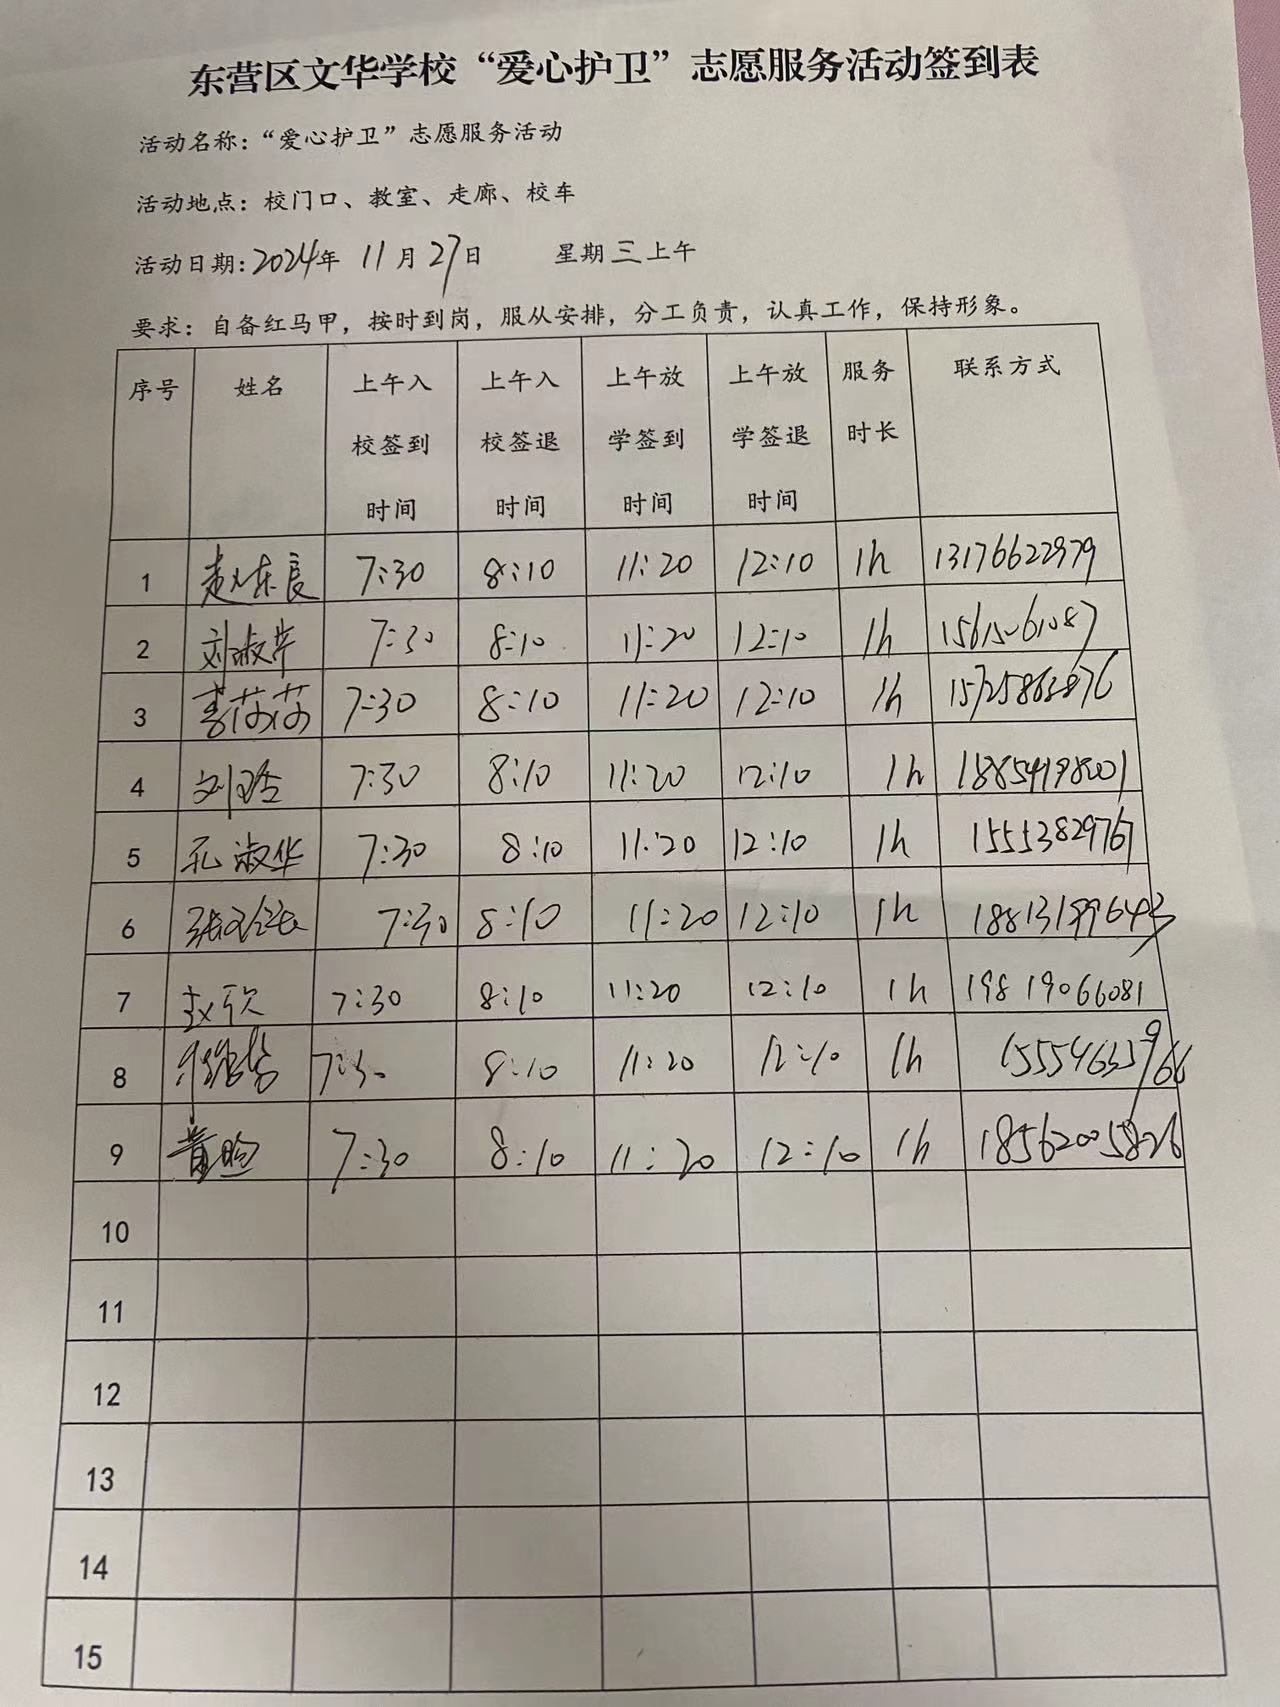 东营区文华学校“爱心护卫”志愿服务活动签到表
活动名称：“爱心护卫”志愿服务活动
活动地点：校门口、教室、走廊、校车
活动日期：2024年 11月27日 星期三上午
要求：自备红马甲，按时到岗，服从安排，分工负责，认真工作，保持形象。
序号 姓名 上午入校签到时间 上午入校签退时间 上午放学签到时间 上午放学签退时间 服务时长 联系方式
1 赵东良 7:30 8:10 11:20 12:10 1h 13176622979
2 刘淑芹 7:30 8:10 11:20 12:10 1h 15615061087
3 李莎莎 7:30 8:10 11:20 12:10 1h
4 7:30 8:10 11:20 12:10 1h 18854198001
5 孔淑华 7:30 8:10 11:20 12:10 1h 15553829767
6 7:30 8:10 11:20 12:10 1h
7 赵欣 7:30 8:10 11:20 12:10 1h 19819066081
8 7:30 8:10 11:20 12:10 1h
9 黄昫 7:30 8:10 11:20 12:10 1h 18562005826
10
11
12
13
14
15